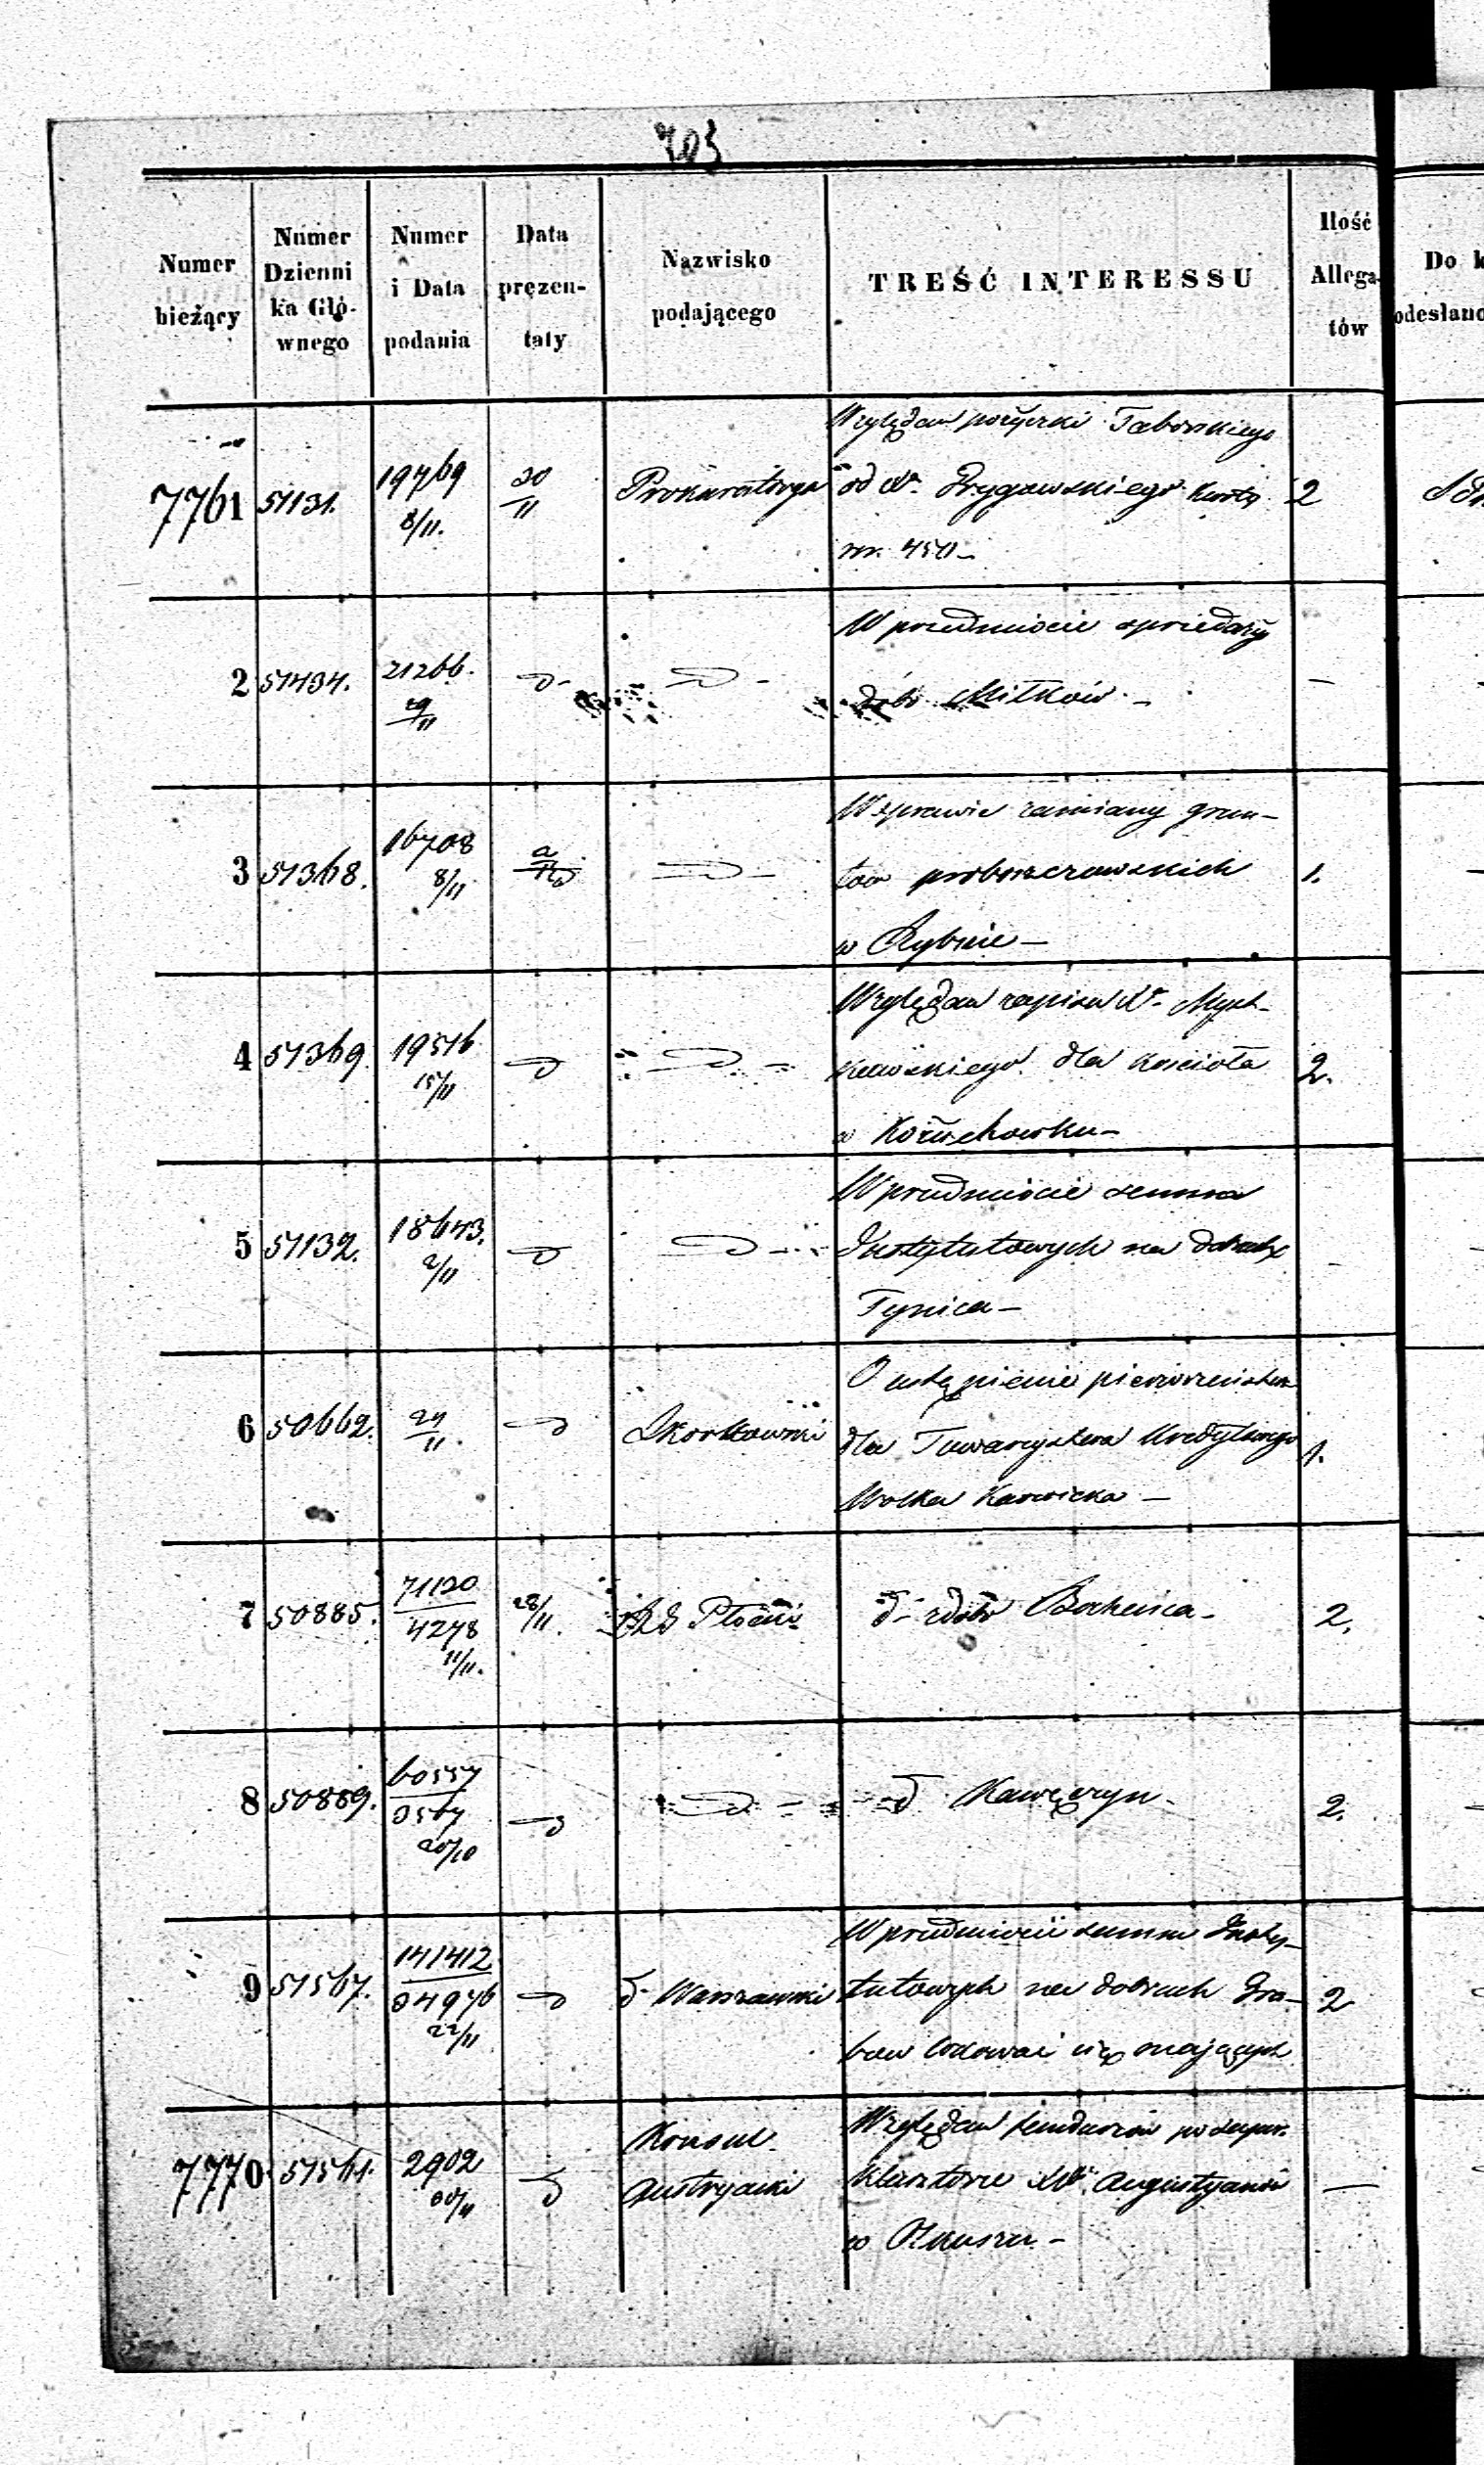 703
Numer bieżący
Numer Dziennika Głównego
Numer i Data podania
Data prezentaty
Nazwisko podającego
TREŚĆ INTERESSU
Ilość Allegatów
Do k
odesłano
7761 51131. 19769 8/11. 30/11 Prokuratorya 2
Względem pożyczki Taborskiego
od Kwoty
nr. 450 –
2 51434. 21266. 29/11 d- d- –
W przedmiocie sprzedaży
dóbr Miłków –
3 51368. 16708 8/11 2/12 d- 1.
W sprawie zamiany grun-
tów proboszczowskich
w Rybnie –
4 51369. 19516 15/11 d d- 2.
Względem zapisu Xa Mysz-
kowskiego dla kościoła
w Kożuchowku –
5 51132. 18643. 2/11 d d-
W przedmiocie summ
Instytutowych na dobrach
Tynica –
6 50662. 24/11. d 1.
O ustąpienie pierwszeństwa
dla Towarzystwa Kredytowego
Wolka Karwicka –
7 50885. 71120/4278 11/11. 28/11. Płocki 2.
d- z dóbr
8 50889. 60557/3567 20/10 d d- 2.
d Kawęczyn –
9 51567. 141412/34976 22/11 d d- Warszawski 2
W przedmiocie summ Insty-
tutowych na dobrach Gra-
bow lokować się mających
7770. 51561. 2902 30/11 d Konsul Austryacki –
Względem funduszów po
klasztorze XX. Augustyanów
w Olkuszu –